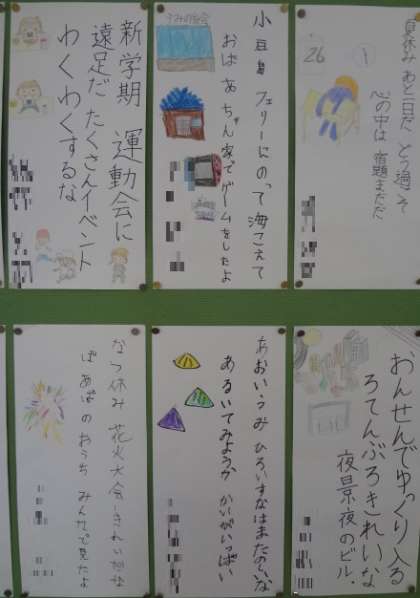 夏休み あと一日だ どう過ごそ
心の中は 宿題まだだ
26
1
小豆島 フェリーにのって 海こえて
おばあちゃん家で ゲームをしたよ
新学期 運動会に
遠足だ たくさんイベント
わくわくするな
おんせんで ゆっくり入る
ろてんぶろ きれいな
夜景 夜のビル.
あおいうみ ひろいすなはま たのしいな
あるいてみようか かいがいっぱい
なつ休み 花火大会 きれい
ばあばのおうち みんなで見たよ